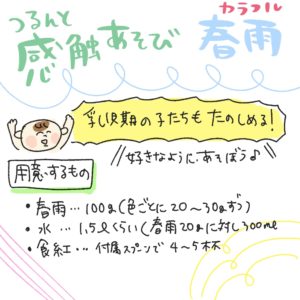 つるんと
感触あそび
カラフル
春雨
乳児期の子たちも たのしめる!
好きなようにあそぼう♪
用意するもの
・春雨…100g(色ごとに20〜30gずつ)
・水 … 1,5ℓくらい(春雨20gに対し300ml
・食紅… 付属スプーンで 4〜5杯